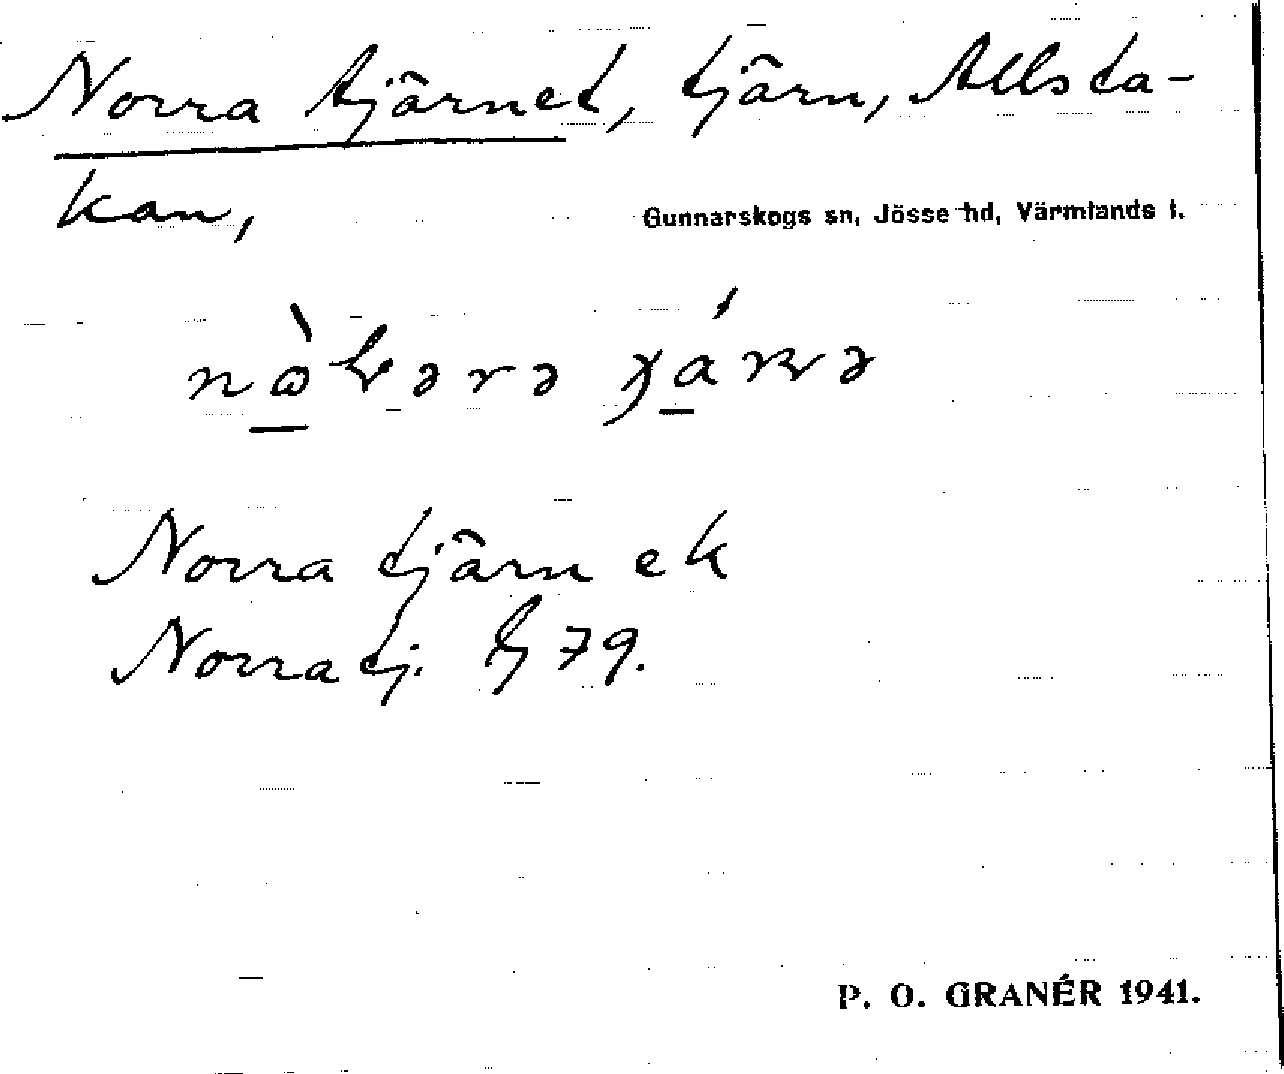 Norra tjärnet, tjärn, Allsta-
kan,
Gunnarskogs sn, Jösse hd, Värmlands l.
Norra tjärn ek
Norra tj. 79.
P. O. GRANÉR 1941.